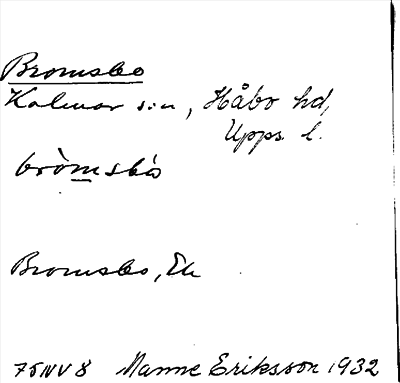 Bromsbo
Kalmar sn, Håbo hd,
Upps. l.
bròmsbó
Bromsbo, Ek
75NV8 Manne Eriksson 1932